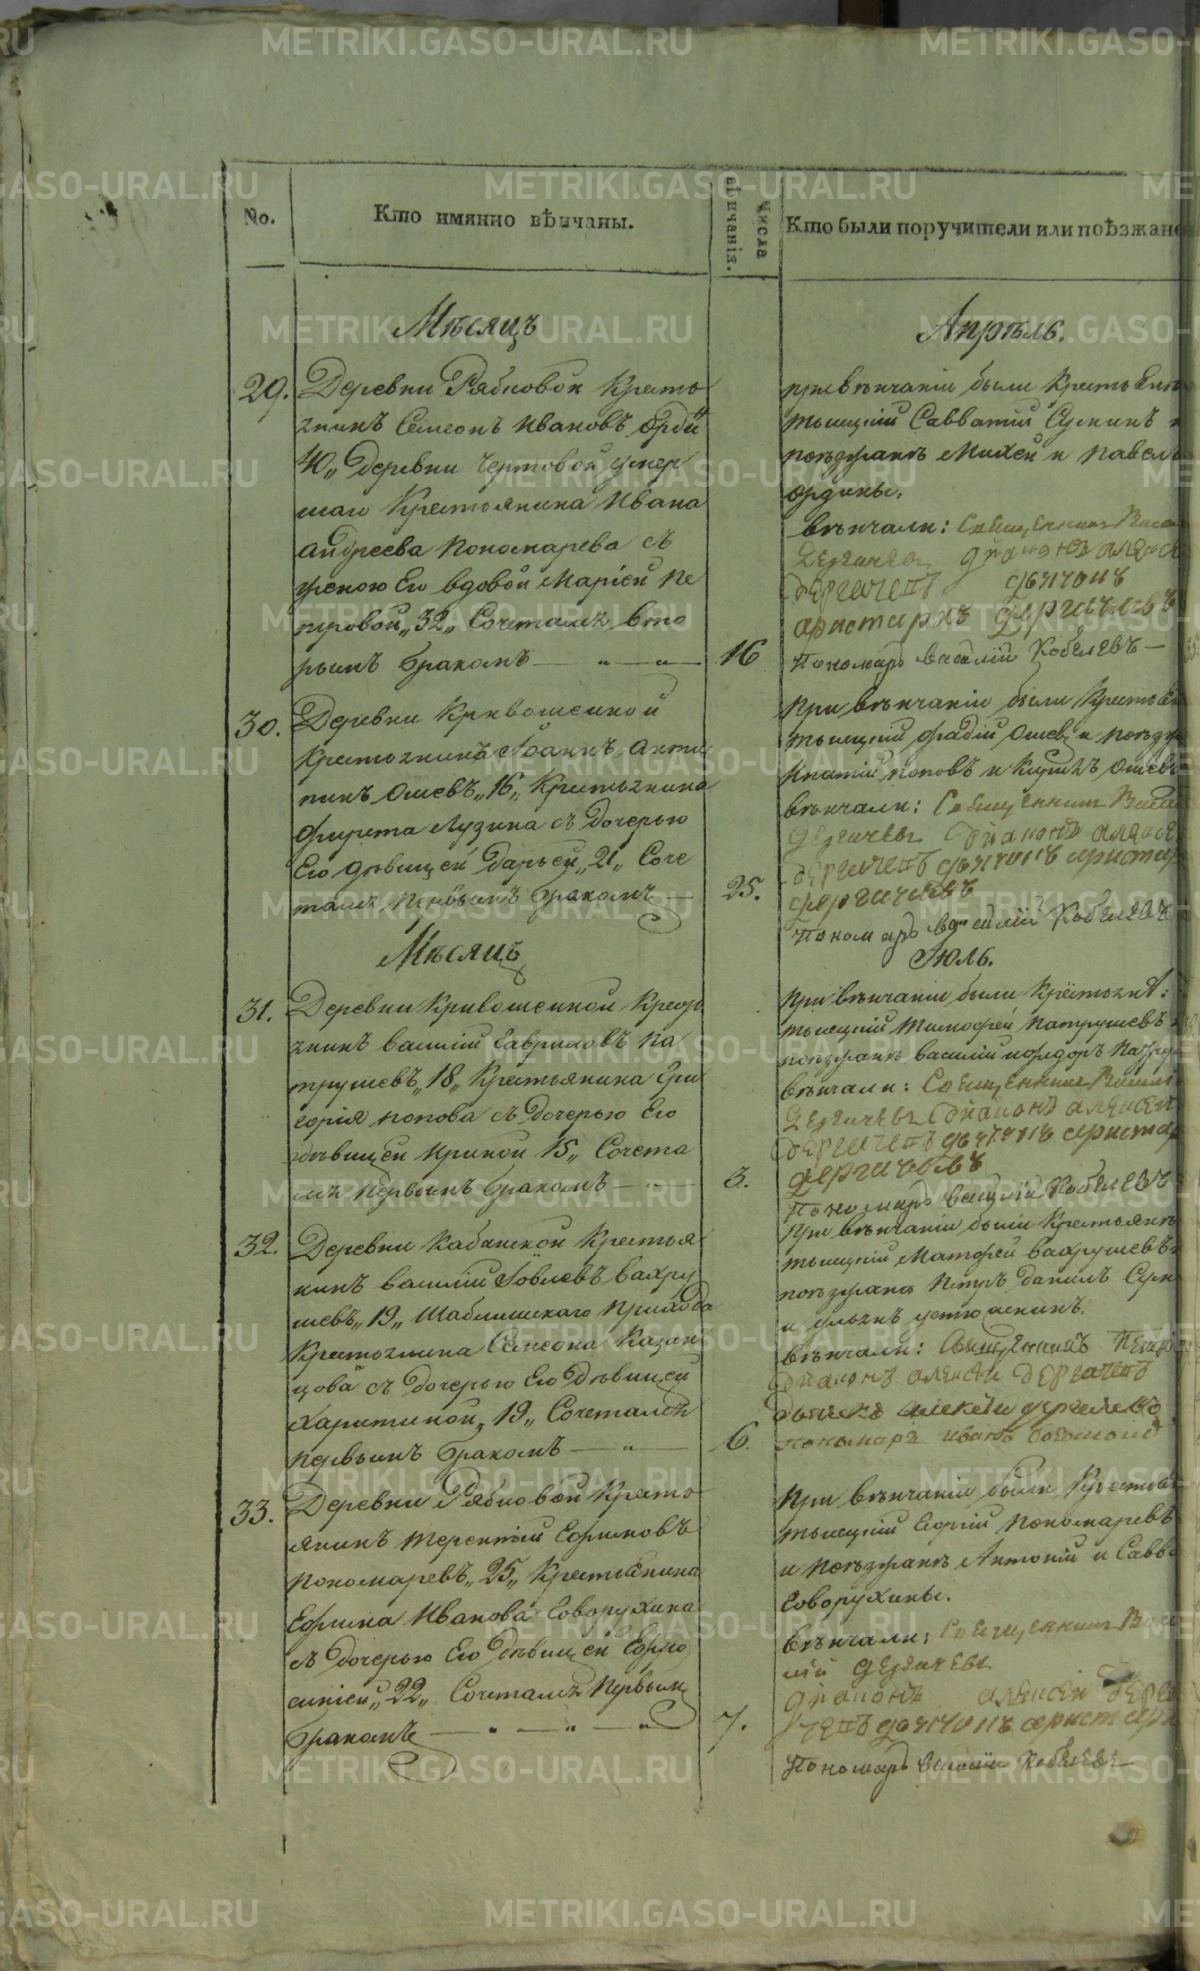 No.
Кто имянно вѣнчаны.
Числа вѣнчанія.
Кто были поручители или поѣзжане
Мѣсяцъ
Апрѣль.
29.
Деревни Рябковой Кресть
янинъ Семеонъ Ивановъ Орди
40,, Деревни Чертовой умер
шаго Крестьянина Ивана
Андреева Пономарева съ
женою Его вдовой Маріей Пе
тровой,,32,, Сочетался вто
рымъ бракомъ
16
при вѣнчаніи были Кресть
тысяцкій Савватій
поѣзжанѣ Михей и Павелъ
Ордины.
вѣнчали: Священникъ
Дергачевъ Діаконъ Алексе
Дергачевъ дьячокъ
Аристархъ Дергачевъ
Пономарь Василій Кобелевъ
30.
Деревни Кривошеиной
Крестьянинъ Іоаннъ Анти
пинъ Ошевъ,,16,, Крестьянина
Лузина съ дочерью
Его дѣвицей Дарьей,,21,, Соче
тался первымъ бракомъ
25.
при вѣнчаніи были Кресть
тысяцкій Ошев и поѣзж
Ипатій Поповъ и Ошевъ
вѣнчали: Священникъ
Дергачевъ Діаконъ Алексе
Дергачевъ дьячокъ Аристар
Дергачевъ
Пономарь Василій Кобелевъ
Мѣсяцъ
Іюль.
31.
Деревни Кривошеиной Кресть
янинъ Василій Гавриловъ Па
трушевъ,,18,, Крестьянина Гри
горія Попова съ дочерью Его
дѣвицей Ириной 15,, Сочета
лся первымъ бракомъ
3.
при вѣнчаніи были Крестьян:
тысяцкій Тимофей Патрушевъ
поѣзжанѣ Василій и Федоръ Патру
вѣнчали: Священникъ Васил
Дергачевъ Діаконъ Алексей
Дергачевъ дьячокъ Аристар
Дергачевъ
Пономарь Василій Кобелевъ
32.
Деревни Кабанской Крестья
нинъ Василій Іовлевъ Вахру
шевъ,,19,, Шаблишскаго прихода
Крестьянина Семеона Казан
цова съ дочерью Его дѣвицей
Харитиной,,19,, Сочетался
первымъ бракомъ
6.
при вѣнчаніи были Крестьянѣ
тысяцкій Матфей Вахрушевъ
поѣзжанѣ Петръ Данилъ
вѣнчали: Священникъ
Діаконъ Алексей Дергачевъ
Дьячекъ Алексѣй
пономарь Иванъ
33.
Деревни Рябковой Кресть
янинъ Терентій Ефимовъ
Пономаревъ,,25,, Крестьянина
Ефима Иванова Говорухина
съ дочерью Его дѣвицей Ефро
синіей,,22,, Сочетался первым
бракомъ
7.
при вѣнчаніи были Крестья
тысяцкій Пономаревъ
и поѣзжанѣ Антоній и Савва
Говорухины.
вѣнчали: Священникъ Васи
лій Дергачевъ
Діаконъ Алексей Дерга
чевъ дьячокъ Аристарх
Пономарь Василій Кобелевъ
METRIKI.GASO-URAL.RU